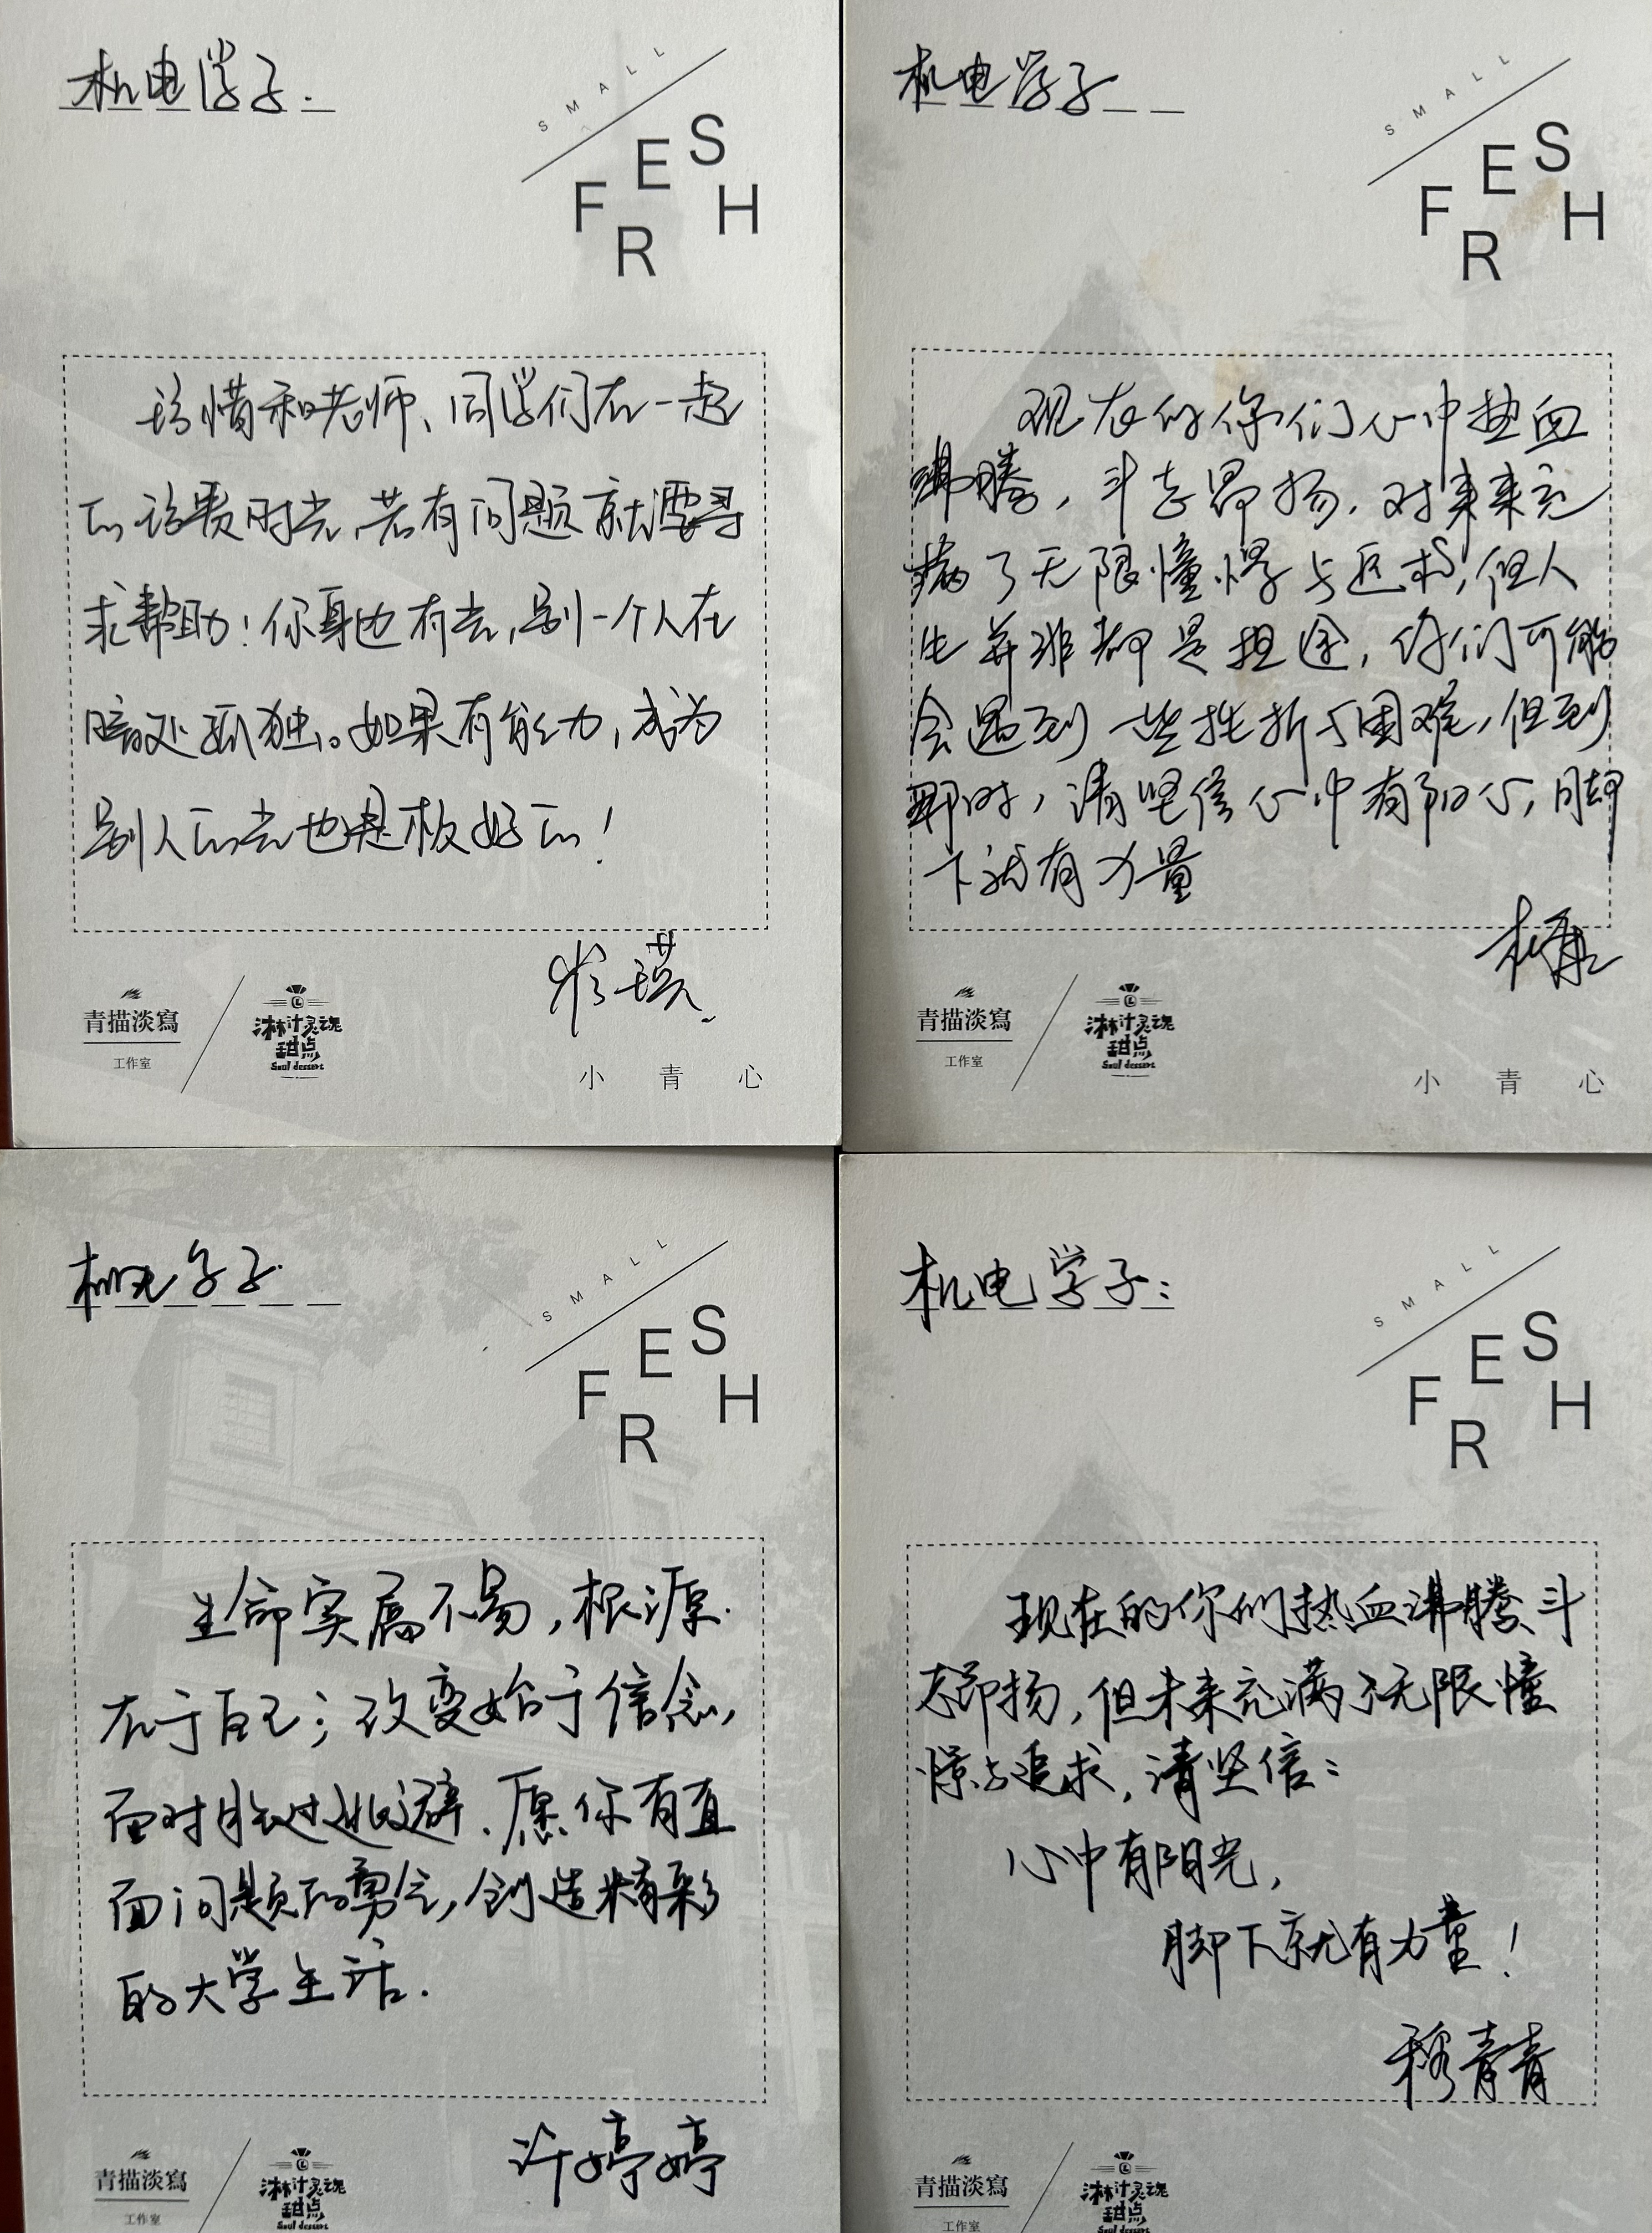 机电学子.
SMALL
FRESH
珍惜和老师、同学们在一起
的珍贵时光,若有问题就要寻
求帮助!你身边有光,别一个人在
暗处孤独。如果有能力,成为
别人的光也是极好的!
青描淡寫
工作室
沐林汁灵魂
甜点
Soul dessert
小青心
机电学子
SMALL
FRESH
现在的你们心中热血
沸腾,斗志昂扬,对未来充
满了无限憧憬与追求,但人
生并非都是坦途,你们可能
会遇到一些挫折与困难,但到
那时,请坚信心中有阳光,脚
下就有力量
青描淡寫
工作室
沐林汁灵魂
甜点
Soul dessert
小青心
机电学子.
SMALL
FRESH
生命实属不易,根源.
在于自己;改变始于信念,
面对胜过逃避.愿你有直
面问题的勇气,创造精彩
的大学生活.
许婷婷
青描淡寫
工作室
沐林汁灵魂
甜点
Soul dessert
机电学子:
SMALL
FRESH
现在的你们热血沸腾、斗
志昂扬,但未来充满了无限憧
憬与追求,请坚信:
心中有阳光,
脚下就有力量!
穆青青
青描淡寫
工作室
沐林汁灵魂
甜点
Soul dessert